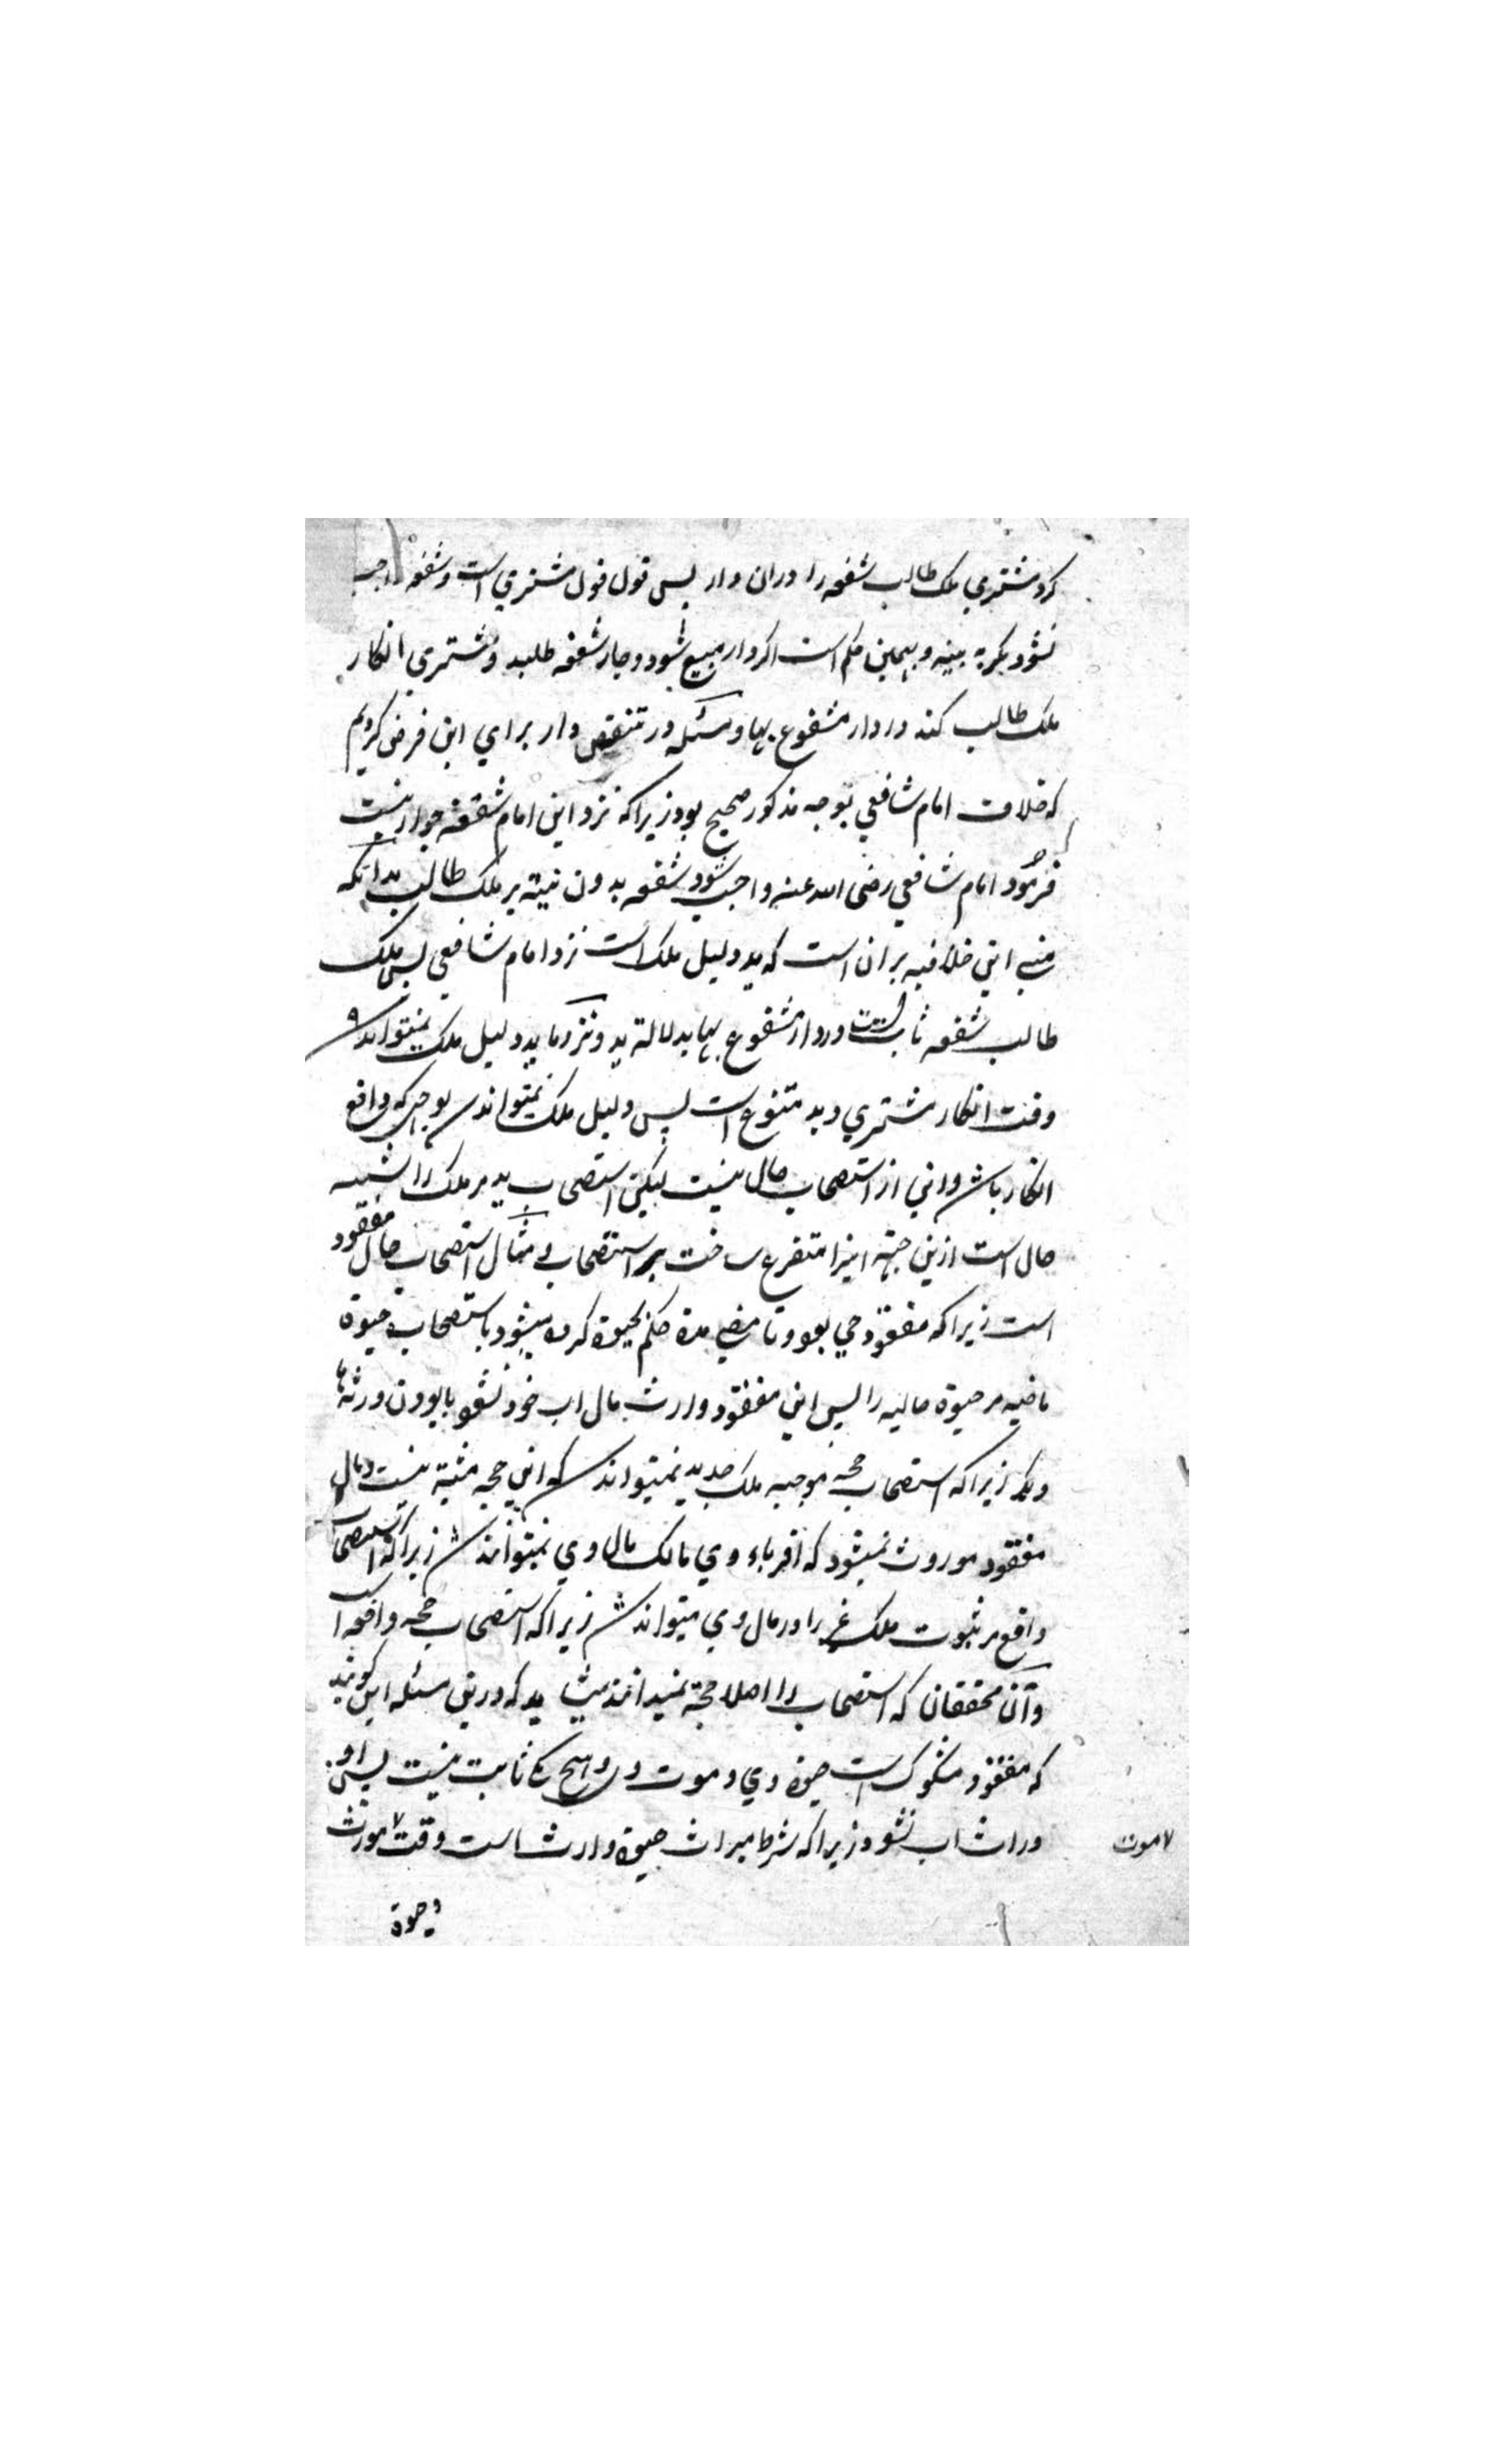 کرد مشتری ملک طالب شفعه را دران دار پس قول قول مشتری است و شفعه واجب
نشود مگر به بینه و بهمین حکم است اگر دار مبیع شود و جار شفعه طلبد و مشتری انکار
ملک طالب کند در دار مشفوع بها و مسئله در شقص دار برای این فرض کردیم
که خلاف امام شافعی بوجه مذکور صحیح بود زیرا که نزد این امام شفعه جوار نیست
فرمود امام شافعی رضی الله عنه واجب شود شفعه بدون بینه بر ملک طالب بدانکه
مبنی این خلافیه بران است که ید دلیل ملک است نزد امام شافعی پس ملک
طالب شفعه ثابت است در دار مشفوع بها بدلالة ید و نزد ما ید دلیل ملک نمیتواند ش
وقت انکار مشتری و ید متنوع است پس دلیل ملک نمیتواند ش بوجهی که دافع
انکار باشد و این از استصحاب حال نیست لیکن استصحاب ید مر ملک را شبیه
حال است ازین جهة اینرا متفرع ساخت بر استصحاب و مثال استصحاب حال مفقود
است زیرا که مفقود حی بود و تا مضی مدة حکم بحیوة کرده میشود باستصحاب حیوة
ماضیه مر حیوة حالیه را پس این مفقود وارث مال اب خود نشود با بودن ورثه
دیگر زیرا که استصحاب حجه موجبه ملک جدید نمیتواند ش که این حجه مثبتة نیست و مال
مفقود موروث نمیشود که اقرباء وی مالک مال وی نمیتوانند ش زیرا که استصحاب
دافع مر ثبوت ملک غیر را در مال وی میتواند ش زیرا که استصحاب حجه دافعه است
و آن محققان که استصحاب را اصلا حجة نمیدانند میشاید که درین مسئله این گویند
که مفقود مشکوک است حیوة وی و موت وی و هیچ یکی ثابت نیست پس او
وارث اب نشود زیرا که شرط میراث حیوة وارث است وقت ۷ مورث
۷ موت
و حیوة